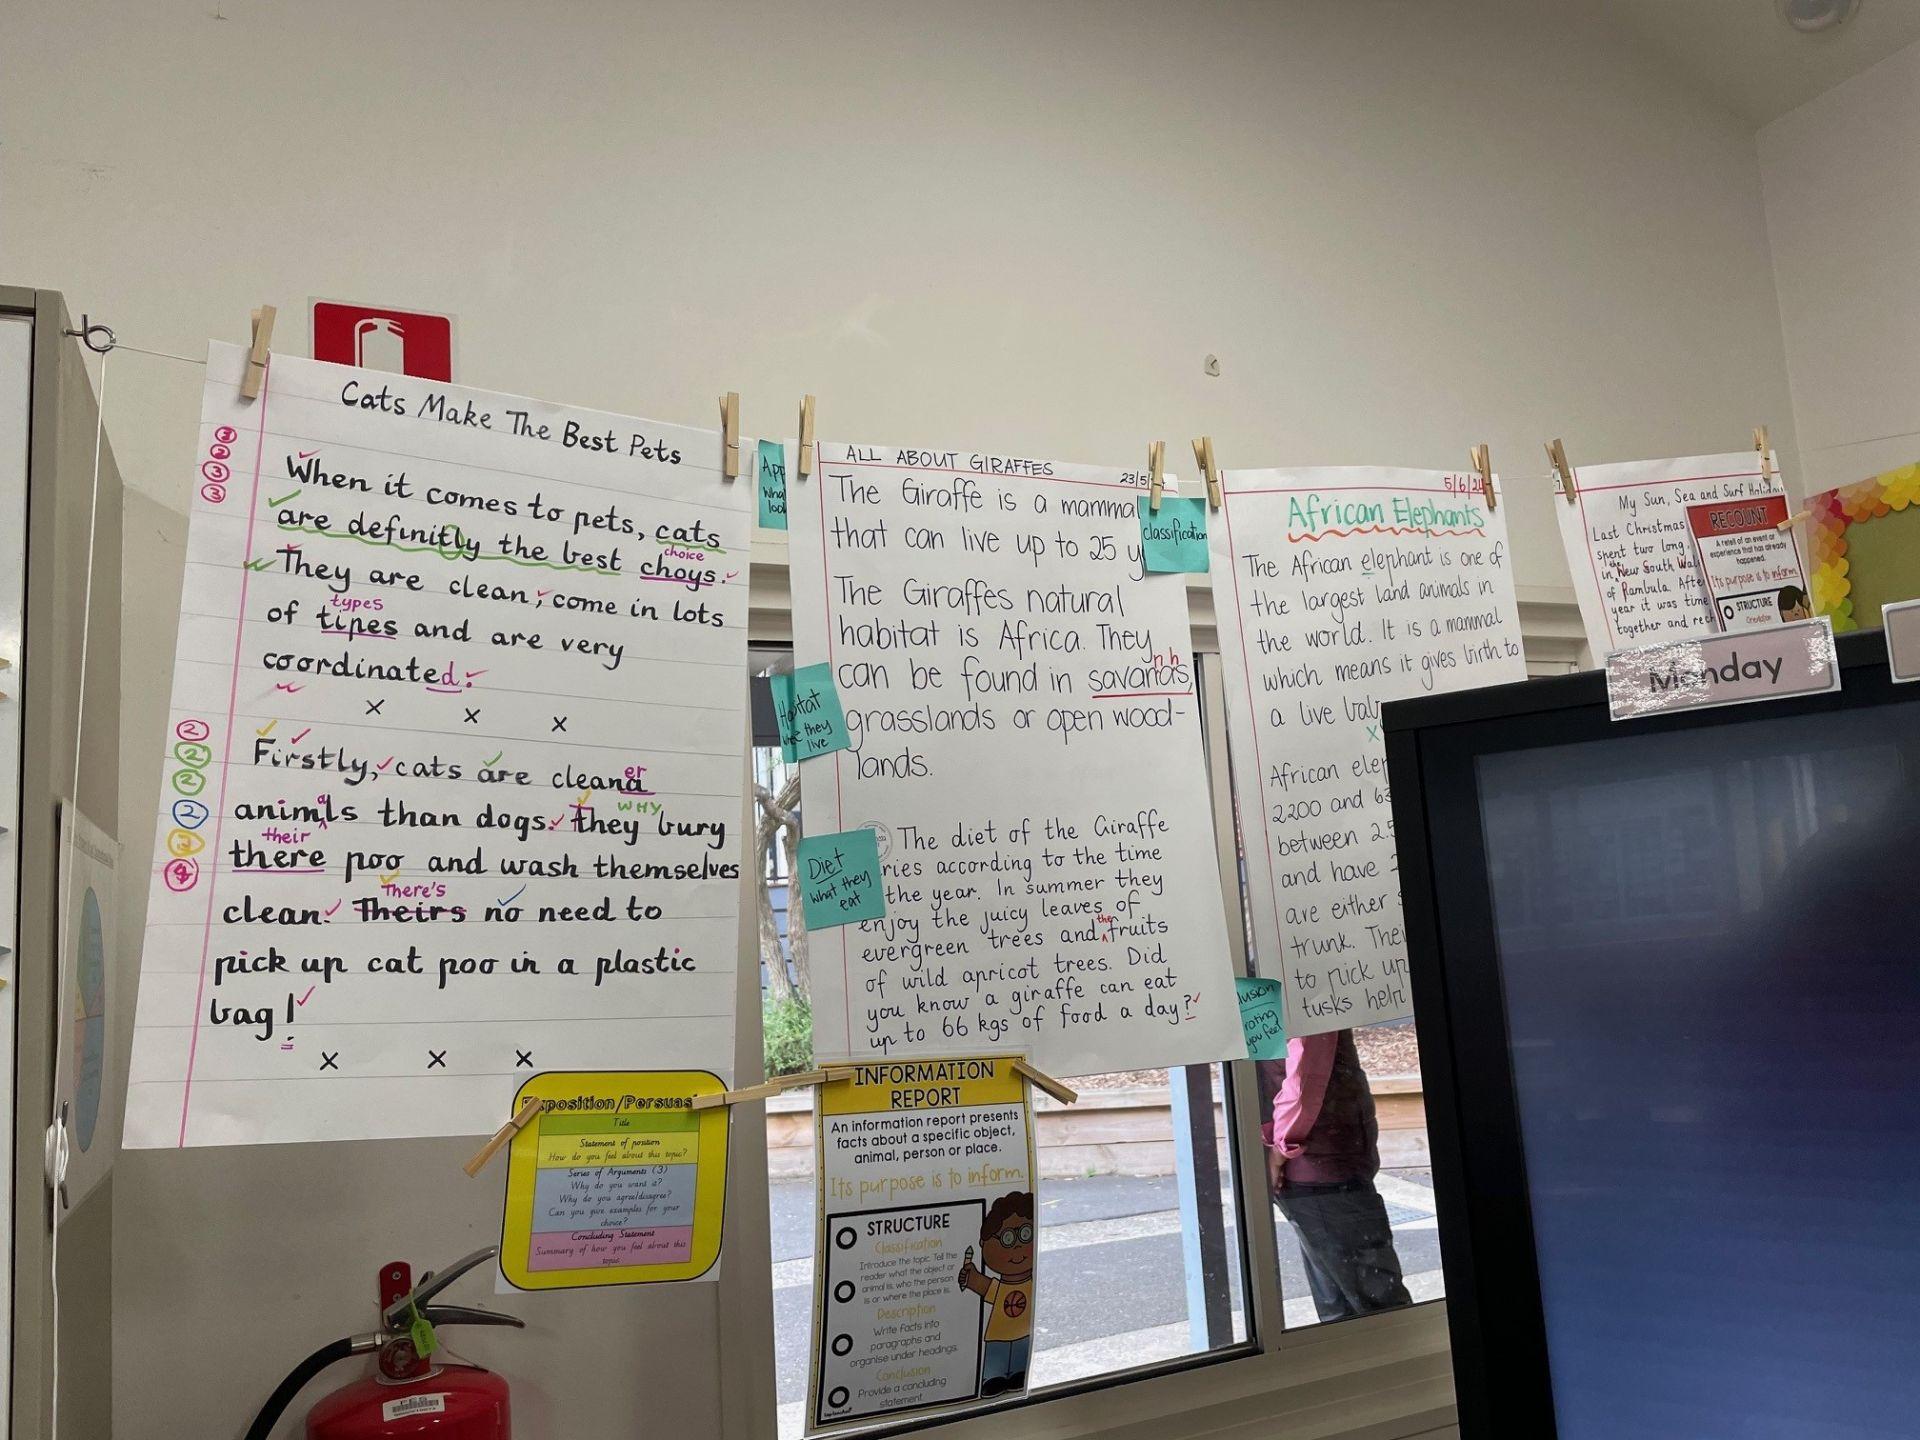 Cats Make The Best Pets
3
2
3
3
When it comes to pets, cats
are definitly the best choys.
choice
They are clean, come in lots
types
of tipes and are very
coordinated.
x x x
2
2
2
2
2
Firstly, cats are cleana
er
animls than dogs. They bury
a
WHY
their
there poo and wash themselves
There's
clean. Theirs no need to
pick up cat poo in a plastic
bag!
x x x
Exposition/Persuas
Title
Statement of position
How do you feel about this topic?
Series of Arguments (3)
Why do you want it?
Why do you agree/disagree?
Can you give examples for your
choice?
Concluding Statement
Summary of how you feel about this
topic
App
Wha
loo
ALL ABOUT GIRAFFES
23/5/
The Giraffe is a mammal
that can live up to 25 y
Classification
The Giraffes natural
habitat is Africa. They
can be found in savanas,
n h
grasslands or open wood-
lands.
Habitat
where they
live
Diet
what they
eat
The diet of the Giraffe
ries according to the time
the year. In summer they
enjoy the juicy leaves of
the
evergreen trees and fruits
of wild apricot trees. Did
you know a giraffe can eat
up to 66 kgs of food a day?
INFORMATION
REPORT
An information report presents
facts about a specific object,
animal, person or place.
Its purpose is to inform.
STRUCTURE
Classification
Introduce the topic. Tell the
reader what the object or
animal is, who the person
is or where the place is.
Description
Write facts into
paragraphs and
organise under headings.
Conclusion
Provide a concluding
statement
5/6/24
African Elephants
The African elephant is one of
the largest land animals in
the world. It is a mammal
which means it gives birth to
a live
x
African ele
2200 and 63
between 2.5
and have
are either
trunk. Thei
to pick up
tusks help
lusion
rating
you feel
My Sun, Sea and Surf Holiday
Last Christmas
spent two long
the
in New South Wal
of Pambula. Afte
year it was time
together and
RECOUNT
A retell of an event or
experience that has already
happened.
Its purpose is to inform.
STRUCTURE
Orientation
Monday